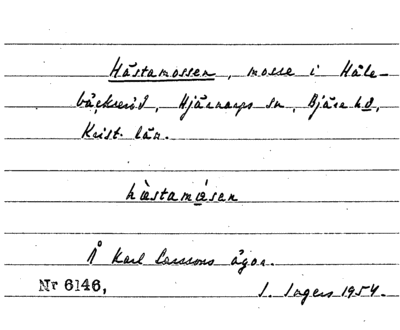 Hästamossen, mosse i Häle-
bäckseröd, Hjärnarps sn, Bjäre hd,
Krist. län.
hàstamǻsen
Å Karl Larssons ägor.
Nr 6146, I. Ingers 1954.